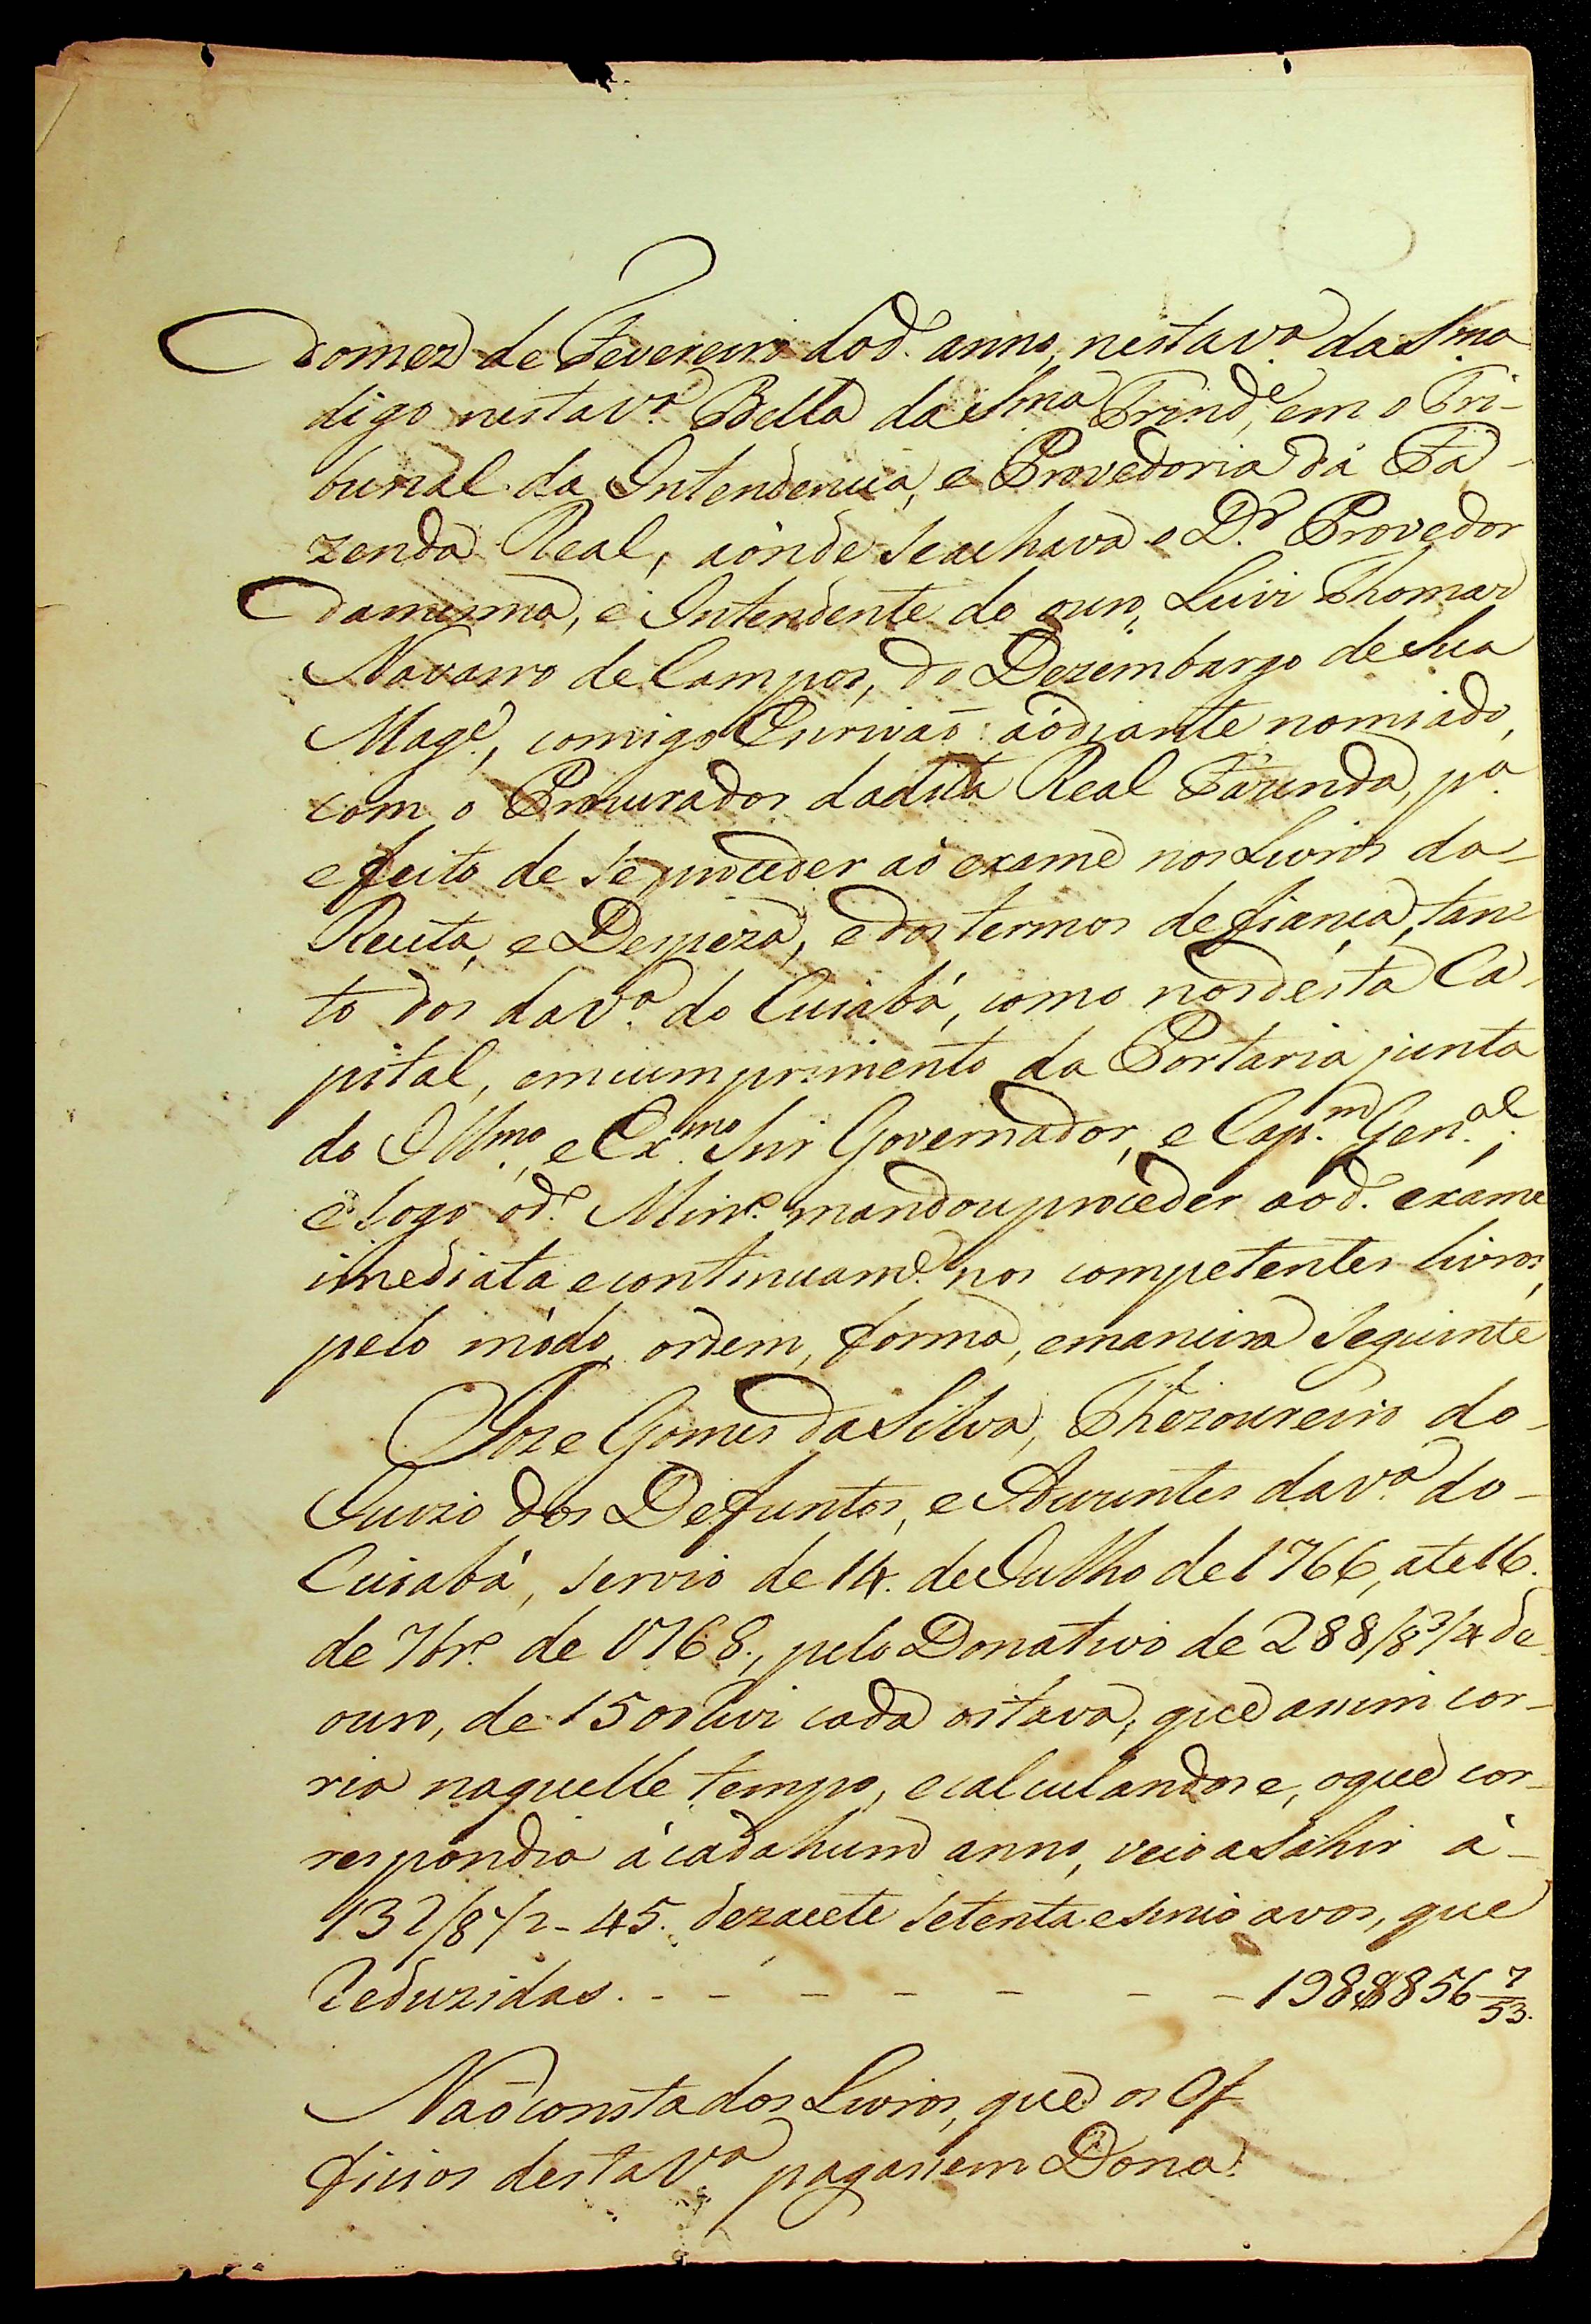 do mez de Fevereiro do d.º anno, nesta v.ª da S.ma
digo nesta v.ª Bella da S.ma Trind.e, em o Tri-
bunal da Intendencia, e Provedoria da Fa-
zenda Real, aonde se achava o D.r Provedor
da mesma, e Intendente do ouro, Luis Thomas
Navarro de Campos, do Dezembargo de Sua
Mag.e, comigo Escrivaõ aodiante nomiado,
com o Procurador da dita Real Fazenda, p.ª
efeito de se proceder aó exame nos Livros da-
Receita, e Despeza, e dos termos de fiança, tan-
to dos da v.ª do Cuiabá, como nos desta Ca-
pital, em cumprimento da Portaria junta
do Ill.mo, e Ex.mo Snr Governador, e Cap.m Gen.al;
e logo o d.º Min.º mandou proceder ao d. exame
imediata e continuam.e nos competentes livros,
pelo módo, ordem, forma, e maneira seguinte
Joze Gomes da Silva, Thezoureiro do-
Juizo dos Defuntos, e Auzentes da v.ª do-
Cuiabá, servio de 14. de Julho de 1766, ate 16.
de 7br.º de 1768., pelo Donativo de 288/8 3/4 de
ouro, de 1500 reis cada oitava, que assim cor-
ria naquelle tempo, e calculandose, o que cor-
respondia á cada hum anno, veio a sahir á-
132/8 1/2 - 45. dezacete setenta e sinco avos, que
Reduzidas. - - - - - - 198$856 7/53.
Naõ consta dos Livros, que os Of
ficios desta V.ª pagassem Dona.